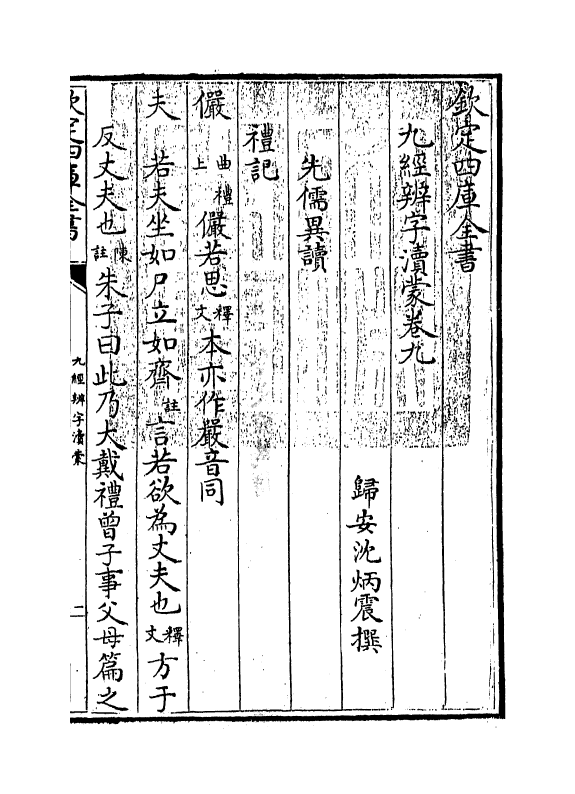 欽定四庫全書
九經辨字瀆蒙卷九
歸安沈炳震撰
先儒異讀
禮記
儼 曲禮上 儼若思 釋文 本亦作嚴音同
夫 若夫坐如尸立如齊 註 言若欲為丈夫也 釋文 方于
反丈夫也 陳註 朱子曰此乃大戴禮曾子事父母篇之
欽定四庫全書
九經辨字瀆蒙
二